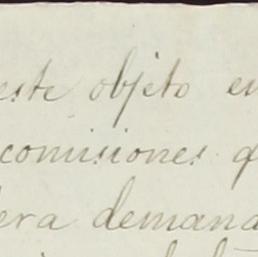 este objeto en
comisiones q
era demand